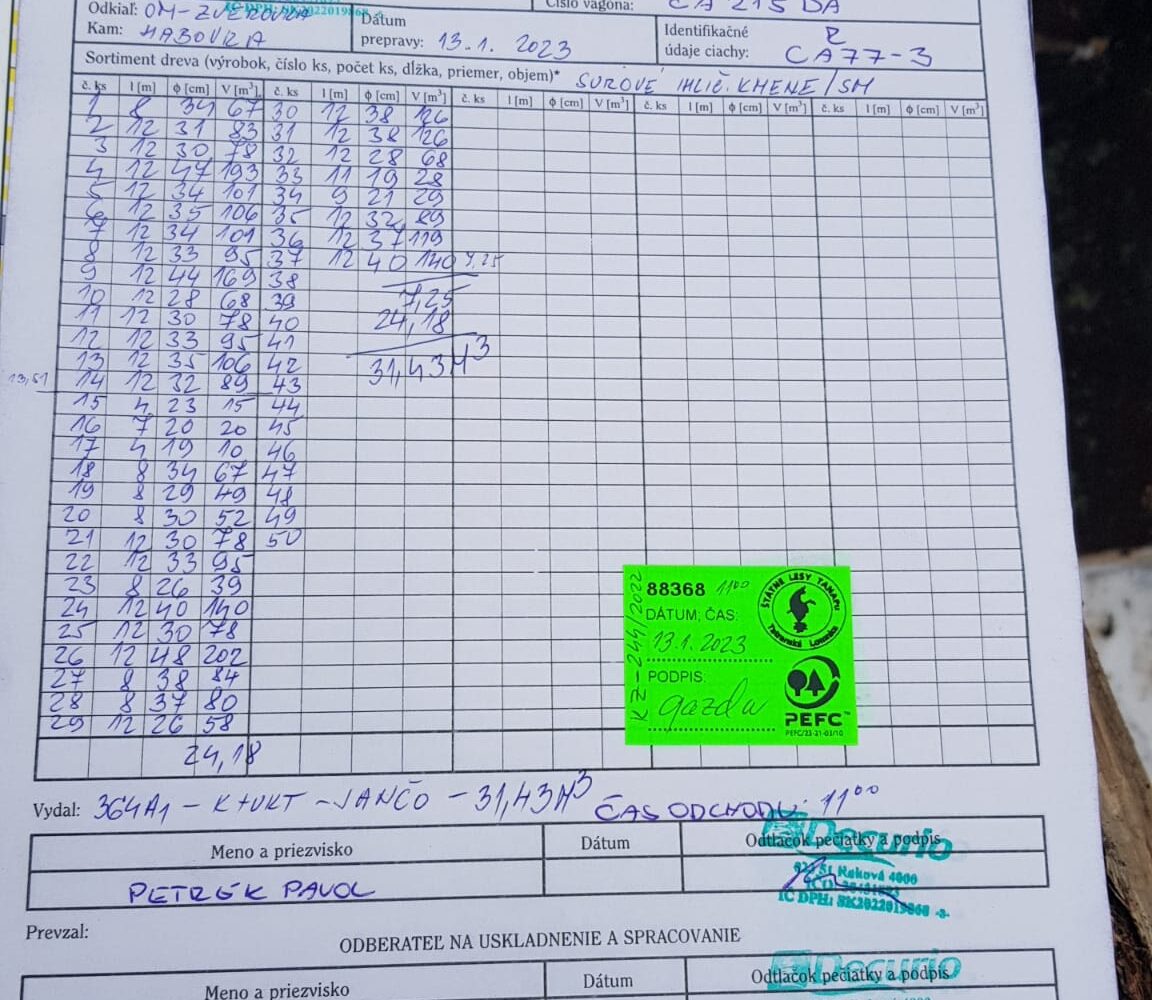 Odkiaľ: OM-ZVEROVKA
IČ DPH: SK2022019868 -3-
Číslo vagóna: CA 215 DA
Kam: HABOVKA
Dátum
prepravy: 13.1. 2023
Identifikačné R
údaje ciachy: CA77-3
Sortiment dreva (výrobok, číslo ks, počet ks, dĺžka, priemer, objem)* SUROVÉ IHLIČ. KMENE/SM
č. ks l [m] ϕ [cm] V [m³] č. ks l [m] ϕ [cm] V [m³] č. ks l [m] ϕ [cm] V [m³] č. ks l [m] ϕ [cm] V [m³] č. ks l [m] ϕ [cm] V [m³]
1 8 34 67 30 12 38 126
2 12 31 83 31 12 38 126
3 12 30 78 32 12 28 68
4 12 47 193 33 11 19 28
5 12 34 101 34 9 21 29
6 12 35 106 35 12 32 89
7 12 34 101 36 12 37 119
8 12 33 95 37 12 40 140 7,25
9 12 44 169 38
10 12 28 68 39 7,25
11 12 30 78 40 24,18
12 12 33 95 41
13 12 35 106 42 31,43M³
13,51 14 12 32 89 43
15 4 23 15 44
16 7 20 20 45
17 4 19 10 46
18 8 34 67 47
19 8 29 49 48
20 8 30 52 49
21 12 30 78 50
22 12 33 95
23 8 26 39
24 12 40 140
25 12 30 78
26 12 48 202
27 8 38 84
28 8 37 80
29 12 26 58
24,18
KZ-244/2022
88368 11⁰⁰
DÁTUM; ČAS:
13.1.2023
PODPIS:
gazda
ŠTÁTNE LESY TANAPU
Tatranská Lomnica
PEFC™
PEFC/23-21-03/10
Vydal: 364A1 - K+UKT - JANČO - 31,43M³ ČAS ODCHODU: 11⁰⁰
Meno a priezvisko Dátum Odtlačok pečiatky a podpis
Decurio
PETREK PAVOL
027 51 Raková 4000
IČO
IČ DPH: SK2022019868 -3-
Prevzal:
ODBERATEĽ NA USKLADNENIE A SPRACOVANIE
Meno a priezvisko Dátum Odtlačok pečiatky a podpis
Decurio